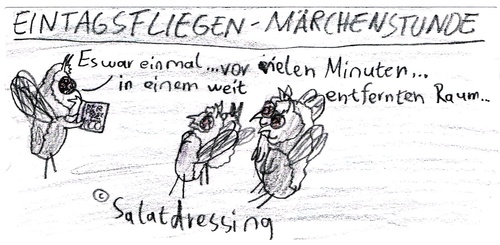 EINTAGSFLIEGEN-MÄRCHENSTUNDE
Es war einmal...vor vielen Minuten...
in einem weit entfernten Raum...
© Salatdressing